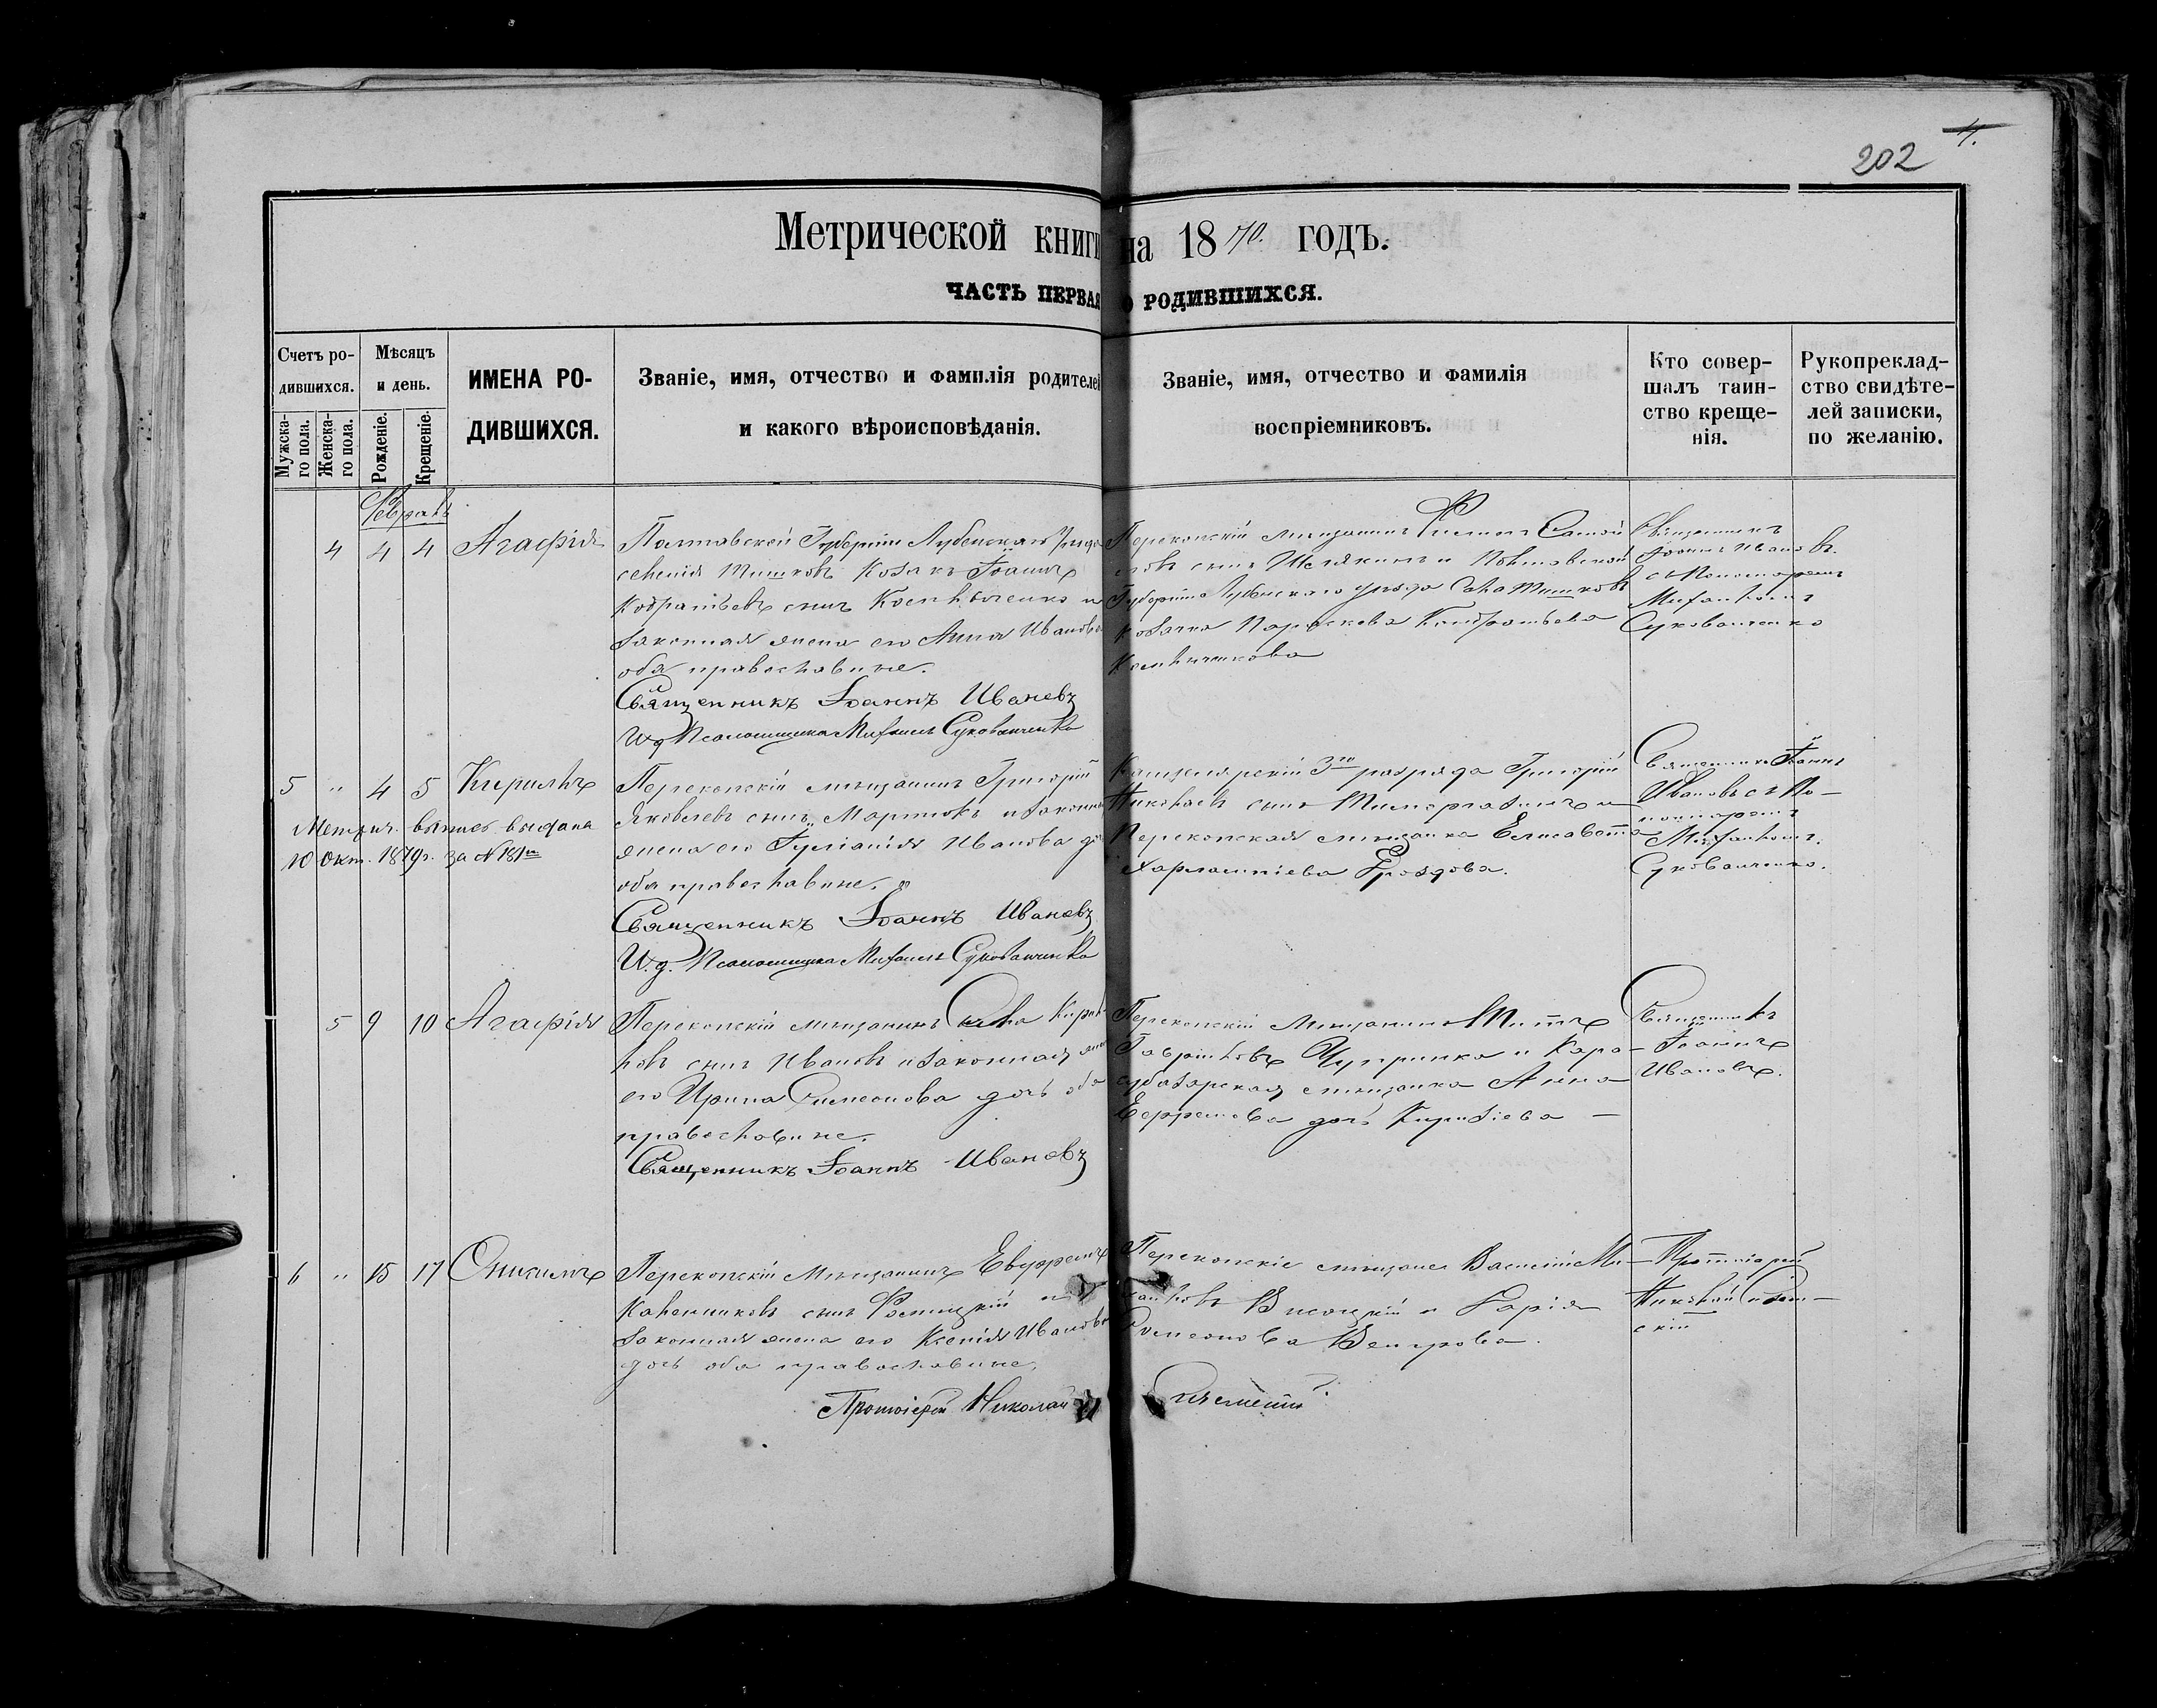 202 4.
Метрической книги на 1870. годъ.
ЧАСТЬ ПЕРВАЯ О РОДИВШИХСЯ.
Счетъ родившихся.
Мужскаго пола.
Женскаго пола.
Мѣсяцъ и день.
Рожденіе.
Крещеніе.
ИМЕНА РО-
ДИВШИХСЯ.
Званіе, имя, отчество и фамилія родителей
и какого вѣроисповѣданія.
Званіе, имя, отчество и фамилія
воспріемниковъ.
Кто совер-
шалъ таин-
ство креще-
нія.
Рукопреклад-
ство свидѣте-
лей записки,
по желанію.
Февраль
4 4 4 Агафія
Полтавской Губерніи Лубенскаго Уѣзда
селенія Тишковъ Козакъ Іоаннъ
Кодратьевъ сынъ и
законная жена его Анна Иванова
оба православные.
Священникъ Іоаннъ Ивановъ
И. д. Псаломщика Михаилъ Суковаченко
Перекопскій мѣщанинъ Филиппъ Самой
ловъ сынъ и Полтавской
Губерніи Лубенскаго уѣзда села Тишковъ
козачка Параскева Кондратьева
Священникъ
Іоаннъ Ивановъ
съ Пономаремъ
Михаиломъ
Суковаченко
5 " 4 5 Кириллъ
Метрич. выпись выдана
10 Окт. 1879 г. за № 181м
Перекопскій мѣщанинъ Григорій
Яковлевъ сынъ Мартюкъ и законная
жена его Іуліанія Иванова дочь
оба православные.
Священникъ Іоаннъ Ивановъ
И. д. Псаломщика Михаилъ Суковаченко
Канцелярскій 3го разряда Григорій
Николаевъ сынъ и
Перекопская мѣщанка Елисавета
Харлампіева Дроздова.
Священникъ Іоаннъ
Ивановъ съ По-
номаремъ
Михаиломъ
Суковаченко.
5 9 10 Агафія
Перекопскій мѣщанинъ Савва Кирил-
ловъ сынъ Ивановъ и законная жена
его Ирина Симеонова дочь оба
православные.
Священникъ Іоаннъ Ивановъ
Перекопскій Мѣщанинъ Титъ
Гавріиловъ Чупринка и Кара-
субазарская мѣщанка Анна
Ефремова дочь
Священникъ
Іоаннъ
Ивановъ.
6 " 15 17 Онисимъ
Перекопскій Мѣщанинъ Евфремъ
сынъ и
законная жена его Ксенія Иванова
дочь оба православные.
Протоіерей Николай
Перекопскіе мѣщане Василій Ми-
хаиловъ Висоцкій и Дарія
Симеонова
Протоіерей
Николай
скій